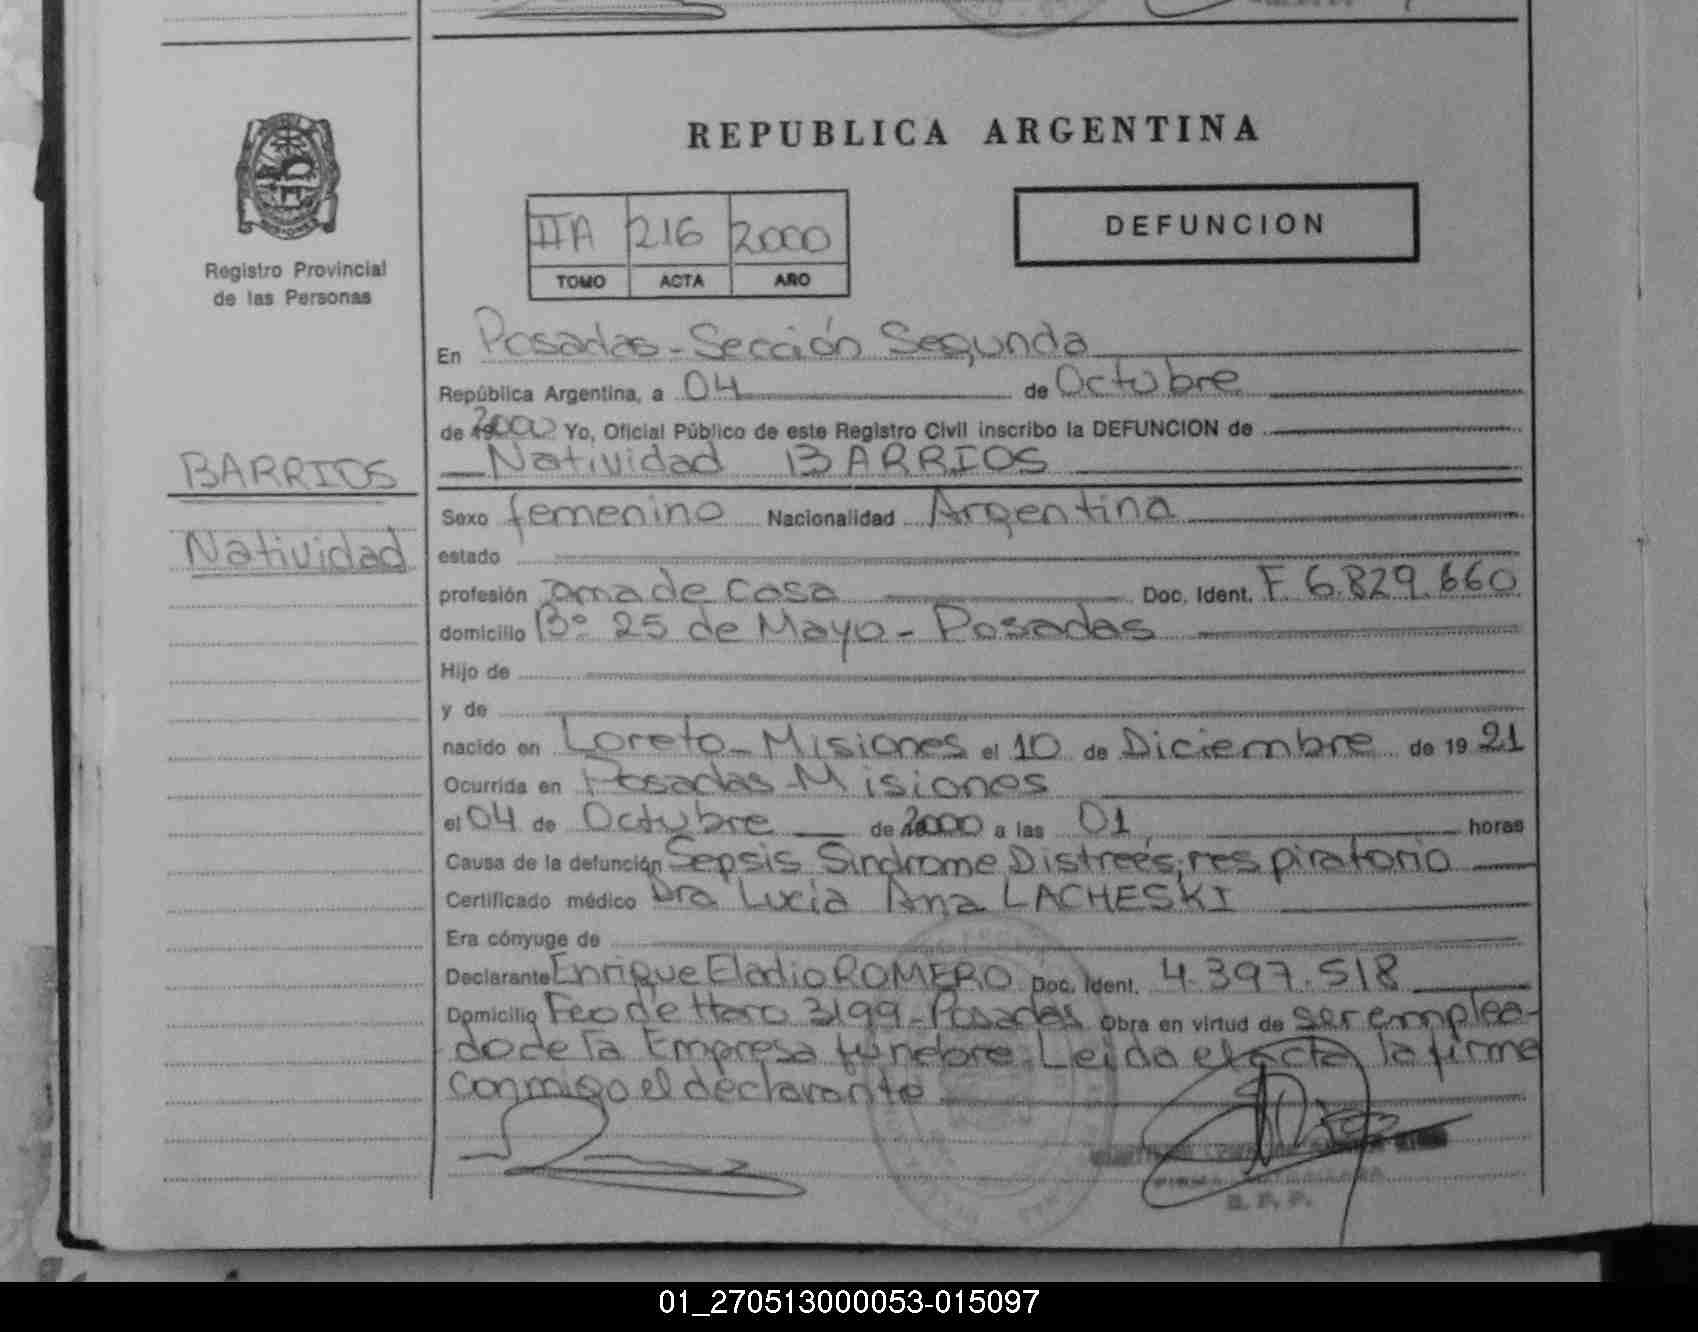 REPUBLICA ARGENTINA
IIA 216 2000
TOMO ACTA AÑO
DEFUNCION
Registro Provincial
de las Personas
BARRIOS
Natividad
En Posadas - Sección Segunda
República Argentina, a 04 de Octubre
de 2000 Yo, Oficial Público de este Registro Civil inscribo la DEFUNCION de
Natividad BARRIOS
Sexo femenino Nacionalidad Argentina
estado
profesión ama de casa Doc. Ident. F. 6.829.660
domicilio Bº 25 de Mayo - Posadas
Hijo de
y de
nacido en Loreto - Misiones el 10 de Diciembre de 1921
Ocurrida en Posadas - Misiones
el 04 de Octubre de 2000 a las 01 horas
Causa de la defunción Sepsis Sindrome Distreés, respiratorio
Certificado médico Dra Lucia Ana LACHESKI
Era cónyuge de
Declarante Enrique Eladio ROMERO Doc. Ident. 4.397.518
Domicilio Feo de Haro 3199 - Posadas Obra en virtud de ser emplea-
do de la Empresa fúnebre. Leída el acta la firma
conmigo el declarante
R. P. P.
01_270513000053-015097